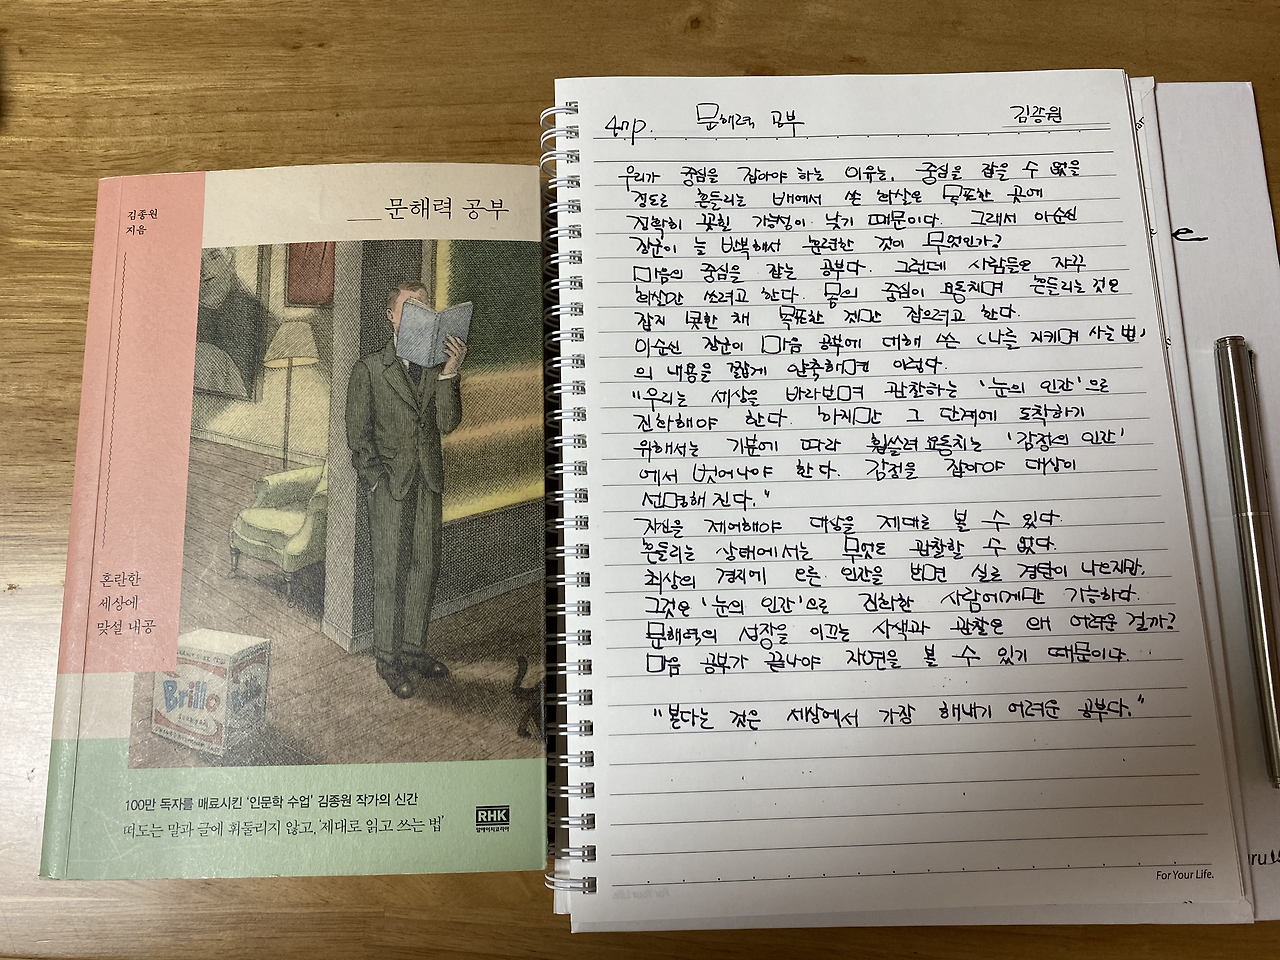 김종원
지음
문해력 공부
혼란한
세상에
맞설 내공
Brillo
100만 독자를 매료시킨 '인문학 수업' 김종원 작가의 신간
떠도는 말과 글에 휘둘리지 않고, '제대로 읽고 쓰는 법'
RHK
알에이치코리아
문해력 공부
김종원
우리가 중심을 잡아야 하는 이유는, 중심을 잡을 수 없을
정도로 흔들리는 배에서 쏜 화살은 목표한 곳에
정확히 꽂힐 가능성이 낮기 때문이다. 그래서 이순신
장군이 늘 반복해서 훈련한 것이 무엇인가?
마음의 중심을 잡는 공부다. 그런데 사람들은 자꾸
화살만 쏘려고 한다. 몸의 중심이 요동치며 흔들리는 것은
잡지 못한 채 목표한 것만 잡으려고 한다.
이순신 장군이 마음 공부에 대해 쓴 <나를 지키며 사는 법>
의 내용을 짧게 압축하면 이렇다.
"우리는 세상을 바라보며 관찰하는 '눈의 인간'으로
진화해야 한다. 하지만 그 단계에 도착하기
위해서는 기분에 따라 휩쓸려 요동치는 '감정의 인간'
에서 벗어나야 한다. 감정을 잡아야 대상이
선명해 진다."
자신을 제어해야 대상을 제대로 볼 수 있다.
흔들리는 상태에서는 무엇도 관찰할 수 없다.
최상의 경지에 오른 인간을 보면 실로 경탄이 나오지만,
그것은 '눈의 인간'으로 진화한 사람에게만 가능하다.
문해력의 성장을 이끄는 사색과 관찰은 왜 어려운 걸까?
마음 공부가 끝나야 자연을 볼 수 있기 때문이다.
"본다는 것은 세상에서 가장 해내기 어려운 공부다."
For Your Life.